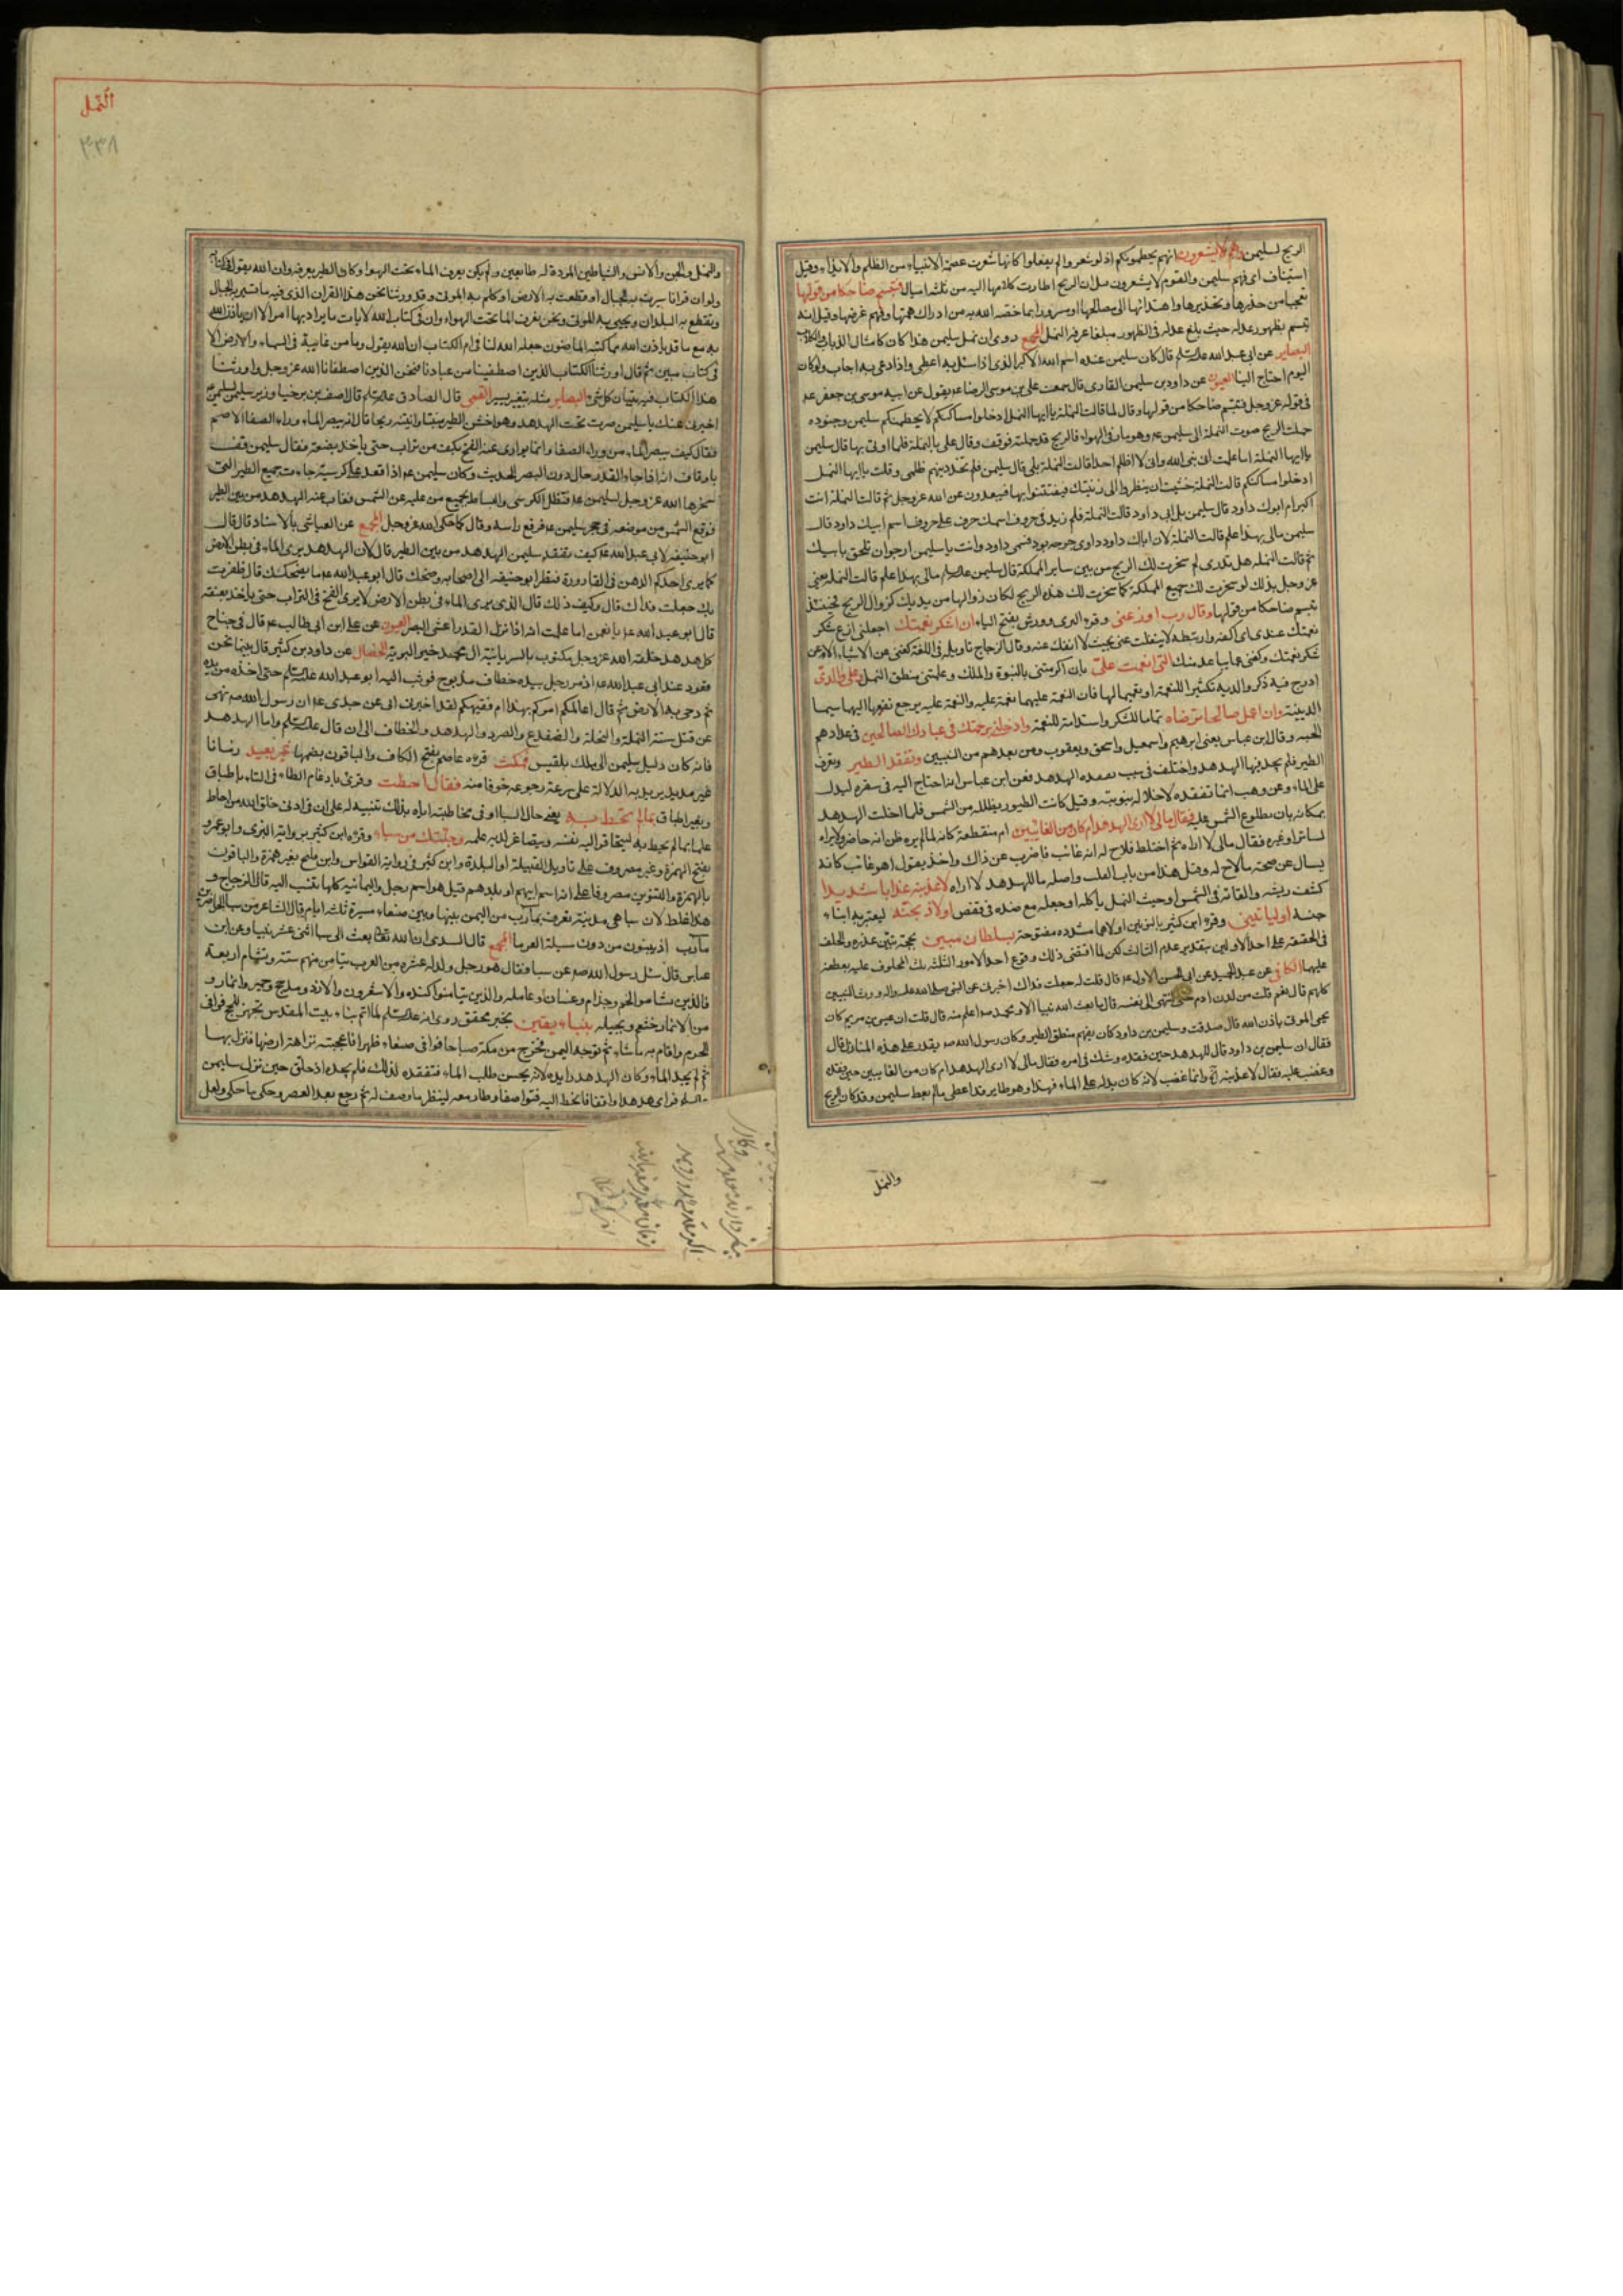 الريح لسليمن وهم لا يشعرون انهم يحطمونكم اذ لو شعروا لم يفعلوا كانها شعرت عصمة الانبياء من الظلم والايذاء وقيل
استيناف اى فهم سليمن والقوم لا يشعرون ان الريح اطارت كلامها اليه من ثلثة اميال فتبسم ضاحكا من قولها
تعجبا من حذرها وتحذيرها واهتدائها الى مصالحها او سرورا بما خصه الله به من ادراك همتها وفهم غرضها وقيل انه
تبسم بظهور عدله حيث بلغ عدله فى الظهور مبلغا عرفه النمل المجمع روى ان نمل سليمن هذا كان كامثال الذياب والكلاب
البصاير عن ابى عبد الله عليه السلم قال كان سليمن عنده اسم الله الاكبر الذى اذا سئل به اعطى واذا دعى به اجاب ولو كان
اليوم احتاج الينا العيون عن داود بن سليمن القارى قال سمعت على بن موسى الرضا عم يقول عن ابيه موسى بن جعفر عم
فى قوله عز وجل فتبسم ضاحكا من قولها وقال لما قالت النملة يا ايها النمل ادخلوا مساكنكم لا يحطمنكم سليمن وجنوده
حملت الريح صوت النملة الى سليمن عم وهو مار فى الهواء فالريح قد حملته فوقف وقال على بالنملة فلما اوتى بها قال سليمن
يا ايها النملة اما علمت انى نبى الله وانى لا اظلم احدا قالت النملة بلى قال سليمن فلم تحذرينهم ظلمى وقلت يا ايها النمل
ادخلوا مساكنكم قالت النملة خشيت ان ينظروا الى زينتك فيفتتنوا بها فيبعدون عن الله عز وجل ثم قالت النملة انت
اكبر ام ابوك داود قال سليمن بل ابى داود قالت النملة فلم زيد فى حروف اسمك حرف على حروف اسم ابيك داود قال
سليمن مالى بهذا علم قالت النملة لان اباك داود داوى جرحه بود فسمى داود وانت يا سليمن ارجو ان تلحق بابيك
ثم قالت النملة هل تدرى لم سخرت لك الريح من بين ساير المملكة قال سليمن مالى بهذا علم قالت النملة يعنى
عز وجل بذلك لو سخرت لك جميع المملكة كما سخرت لك هذه الريح لكان زوالها من يديك كزوال الريح فحينئذ
تبسم ضاحكا من قولها وقال رب اوزعنى وقرء البزى وورش بفتح الياء ان اشكر نعمتك اجعلنى ازع شكر
نعمتك عندى اى اكفه وارتبطه لا ينفلت عنى بحيث لا انفك عنه وقال الزجاج تاويله فى اللغة كفنى عن الاشياء الا عن
شكر نعمتك وكفنى عما يباعد منك التى انعمت على بان اكرمتنى بالنبوة والملك وعلمتنى منطق النمل وعلى والدى
ادرج فيه ذكر والديه تكثيرا للنعمة او تعميما لها فان النعمة عليهما نعمة عليه والنعمة عليه يرجع نفعها اليهما سيما
الدينية وان اعمل صالحا ترضاه تماما للشكر واستدامة للنعمة وادخلنى برحمتك فى عبادك الصالحين فى عدادهم
الجنة وقال ابن عباس يعنى ابرهيم واسمعيل واسحق ويعقوب ومن بعدهم من النبيين وتفقد الطير وتعرف
الطير فلم يجد فيها الهدهد واختلف فى سبب تفقده الهدهد فعن ابن عباس انه احتاج اليه فى سفره ليدل
على الماء وعن وهب انما تفقده لاخلاله بنوبته وقيل كانت الطيور يظلله من الشمس فلما اخلت الهدهد
بمكانه بان بطلوع الشمس عليه فقال مالى لا ارى الهدهد ام كان من الغائبين ام منقطعة كانه لما لم يره ظن انه حاضر ولا يراه
لساتر او غيره فقال مالى لا اراه ثم احتاط فلاح له انه غائب فاضرب عن ذلك واخذ يقول اهو غائب كانه
يسال عن صحة ما لاح له وقيل هذا من باب القلب واصله ما للهدهد لا اراه لاعذبنه عذابا شديدا
كنتف ريشه والقائه فى الشمس او حيث النمل ياكله او جعله مع ضده فى قفص او لاذبحنه ليعتبر به ابناء
جنسه او لياتينى وقرء ابن كثير بالنونين اولاهما مشدده مفتوحة بسلطان مبين بحجة تبين عذره والحلف
فى الحقيقة على احد الاولين بتقدير عدم الثالث لكن لما اقتضى ذلك وقوع احد الامور الثلثة ثلث المحلوف عليه بعطفه
عليهما الكافى عن عبد الحميد عن ابى الحسن الاول عم قال قلت له جعلت فداك اخبرنى عن النبى صلى الله عليه واله ورث النبيين
كلهم قال نعم قلت من لدن ادم حتى انتهى الى نفسه قال ما بعث الله نبيا الا ومحمد صم اعلم منه قال قلت ان عيسى بن مريم كان
يحيى الموتى باذن الله قال صدقت وسليمن بن داود كان يفهم منطق الطير وكان رسول الله صم يقدر على هذه المنازل قال
فقال ان سليمن بن داود قال للهدهد حين فقده وشك فى امره فقال مالى لا ارى الهدهد ام كان من الغايبين حين فقده
وغضب عليه فقال لاعذبنه وانما غضب لانه كان يدله على الماء فهذا وهو طاير قد اعطى ما لم يعط سليمن وقد كان الريح
والنمل
النمل
٣٣٨
والنمل والجن والانس والشياطين المردة له طايعين ولم يكن يعرف الماء تحت الهواء وكان الطير يعرفه وان الله يقول فى كتابه
ولو ان قرانا سيرت به الجبال او قطعت به الارض او كلم به الموتى وقد ورثنا نحن هذا القران الذى فيه ما تسير به الجبال
وتقطع به البلدان ويحيى به الموتى ونحن نعرف الماء تحت الهواء وان فى كتاب الله لايات ما يراد بها امر الا ان ياذن الله
به مع ما قد ياذن الله مما كتبه الماضون جعله الله لنا فى ام الكتاب ان الله يقول وما من غايبة فى السماء والارض الا
فى كتاب مبين ثم قال اورثنا الكتاب الذين اصطفينا من عبادنا فنحن الذين اصطفانا الله عز وجل واورثنا
هذا الكتاب فيه تبيان كل شئ البصاير مثله بتغيير يسير القمى قال الصادق عليه السلم قال اصف بن برخيا وزير سليمن لسليمن عم
اخبرنى عنك يا سليمن صرت تحت الهدهد وهو اخس الطير منبتا وانتنه ريحا قال انه يبصر الماء وراء الصفا الاصم
فقال كيف يبصر الماء من وراء الصفا وانما يوارى عنه الفخ بكف من تراب حتى ياخذ بعنقه فقال سليمن قف
يا وقاف انه اذا جاء القدر حال دون البصر الحديث وكان سليمن عم اذا قعد على كرسيه جاءت جميع الطير التى
سخرها الله عز وجل لسليمن عم فتظل الكرسى والبساط بجميع من عليه عن الشمس فغاب عنه الهدهد من بين الطير
فوقع الشمس من موضعه فى حجر سليمن عم فرفع راسه وقال كما حكى الله عز وجل المجمع عن العياشى بالاسناد قال قال
ابو حنيفة لابى عبد الله عم كيف تفقد سليمن الهدهد من بين الطير قال لان الهدهد يرى الماء فى بطن الارض
كما يرى احدكم الدهن فى القارورة فنظر ابو حنيفة الى اصحابه وضحك قال ابو عبد الله عم ما يضحكك قال ظفرت
بك جعلت فداك قال وكيف ذلك قال الذى يرى الماء فى بطن الارض لا يرى الفخ فى التراب حتى ياخذ بعنقه
قال ابو عبد الله عم يا نعمن اما علمت انه اذا نزل القدر اعشى البصر العيون عن على ابن ابى طالب عم قال فى جناح
كل هدهد خلقه الله عز وجل مكتوب بالسريانية ال محمد خير البرية الخصال عن داود بن كثير قال بينا نحن
قعود عند ابى عبد الله عم اذ مر رجل بيده خطاف مذبوح فوثب اليه ابو عبد الله عليه السلم حتى اخذه من يده
ثم دحى به الارض ثم قال اعالمكم امركم بهذا ام فقيهكم لقد اخبرنى ابى عن جدى عم ان رسول الله صم نهى
عن قتل ستة النملة والنحلة والضفدع والصرد والهدهد والخطاف الى ان قال عليه السلم واما الهدهد
فانه كان دليل سليمن الى ملك بلقيس فمكث قرء عاصم بفتح الكاف والباقون بضمها غير بعيد زمانا
غير مديد يريد به الدلالة على سرعة رجوعه خوفا منه فقال احطت وقرئ بادغام الطاء فى التاء باطباق
وبغير اطباق بما لم تحط به يعنى حال السبا وفى مخاطبته اياه بذلك تنبيه له على ان فى ادنى خلق الله من احاط
علما بما لم يحط به ليتحاقر اليه نفسه ويتصاغر لديه علمه وجئتك من سبا وقرء ابن كثير برواية البزى وابو عمرو
بفتح الهمزة وغير مصروف على تاويل القبيلة او البلدة وابن كثير فى رواية القواس وابن فليح بغير همزة والباقون
بالهمزة والتنوين مصروفا على انه اسم ابيهم او بلدهم قيل هو اسم رجل واليمانية كلها تنسب اليه قال الزجاج و
هذا غلط لان سبا هى مدينة تعرف بمارب من اليمن بينها وبين صنعاء مسيرة ثلثة ايام قال الشاعر من سبا الحاضرين
مارب اذ يبنون من دون سيله العرما المجمع قال السدى ان الله تعالى بعث الى سبا اثنى عشر نبيا وعن ابن
عباس قال سئل رسول الله صم عن سبا فقال هو رجل ولد له عشرة من العرب تيامن منهم ستة وتشام اربعة
فالذين تشاموا لخم وجذام وغسان وعاملة والذين تيامنوا كنده والاشعرون والازد ومذحج وحمير وانمار و
من الانمار خثعم وبجيلة بنباء يقين بخبر محقق روى انه عليه السلم لما اتم بناء بيت المقدس تجهز للحج فوافى
الحرم واقام به ما شاء ثم توجه اليمن فخرج من مكة صباحا فوافى صنعاء ظهرا فاعجبته نزاهة ارضها فنزل بها
ثم لم يجد الماء وكان الهدهد رايده لانه يحسن طلب الماء فتفقده لذلك فلم يجده اذ حلق حين نزل سليمن
فراى هدهدا واقفا فانحط اليه فتواصفا وطار معه لينظر ما وصف له ثم رجع بعد العصر وحكى ما حكى ولعل